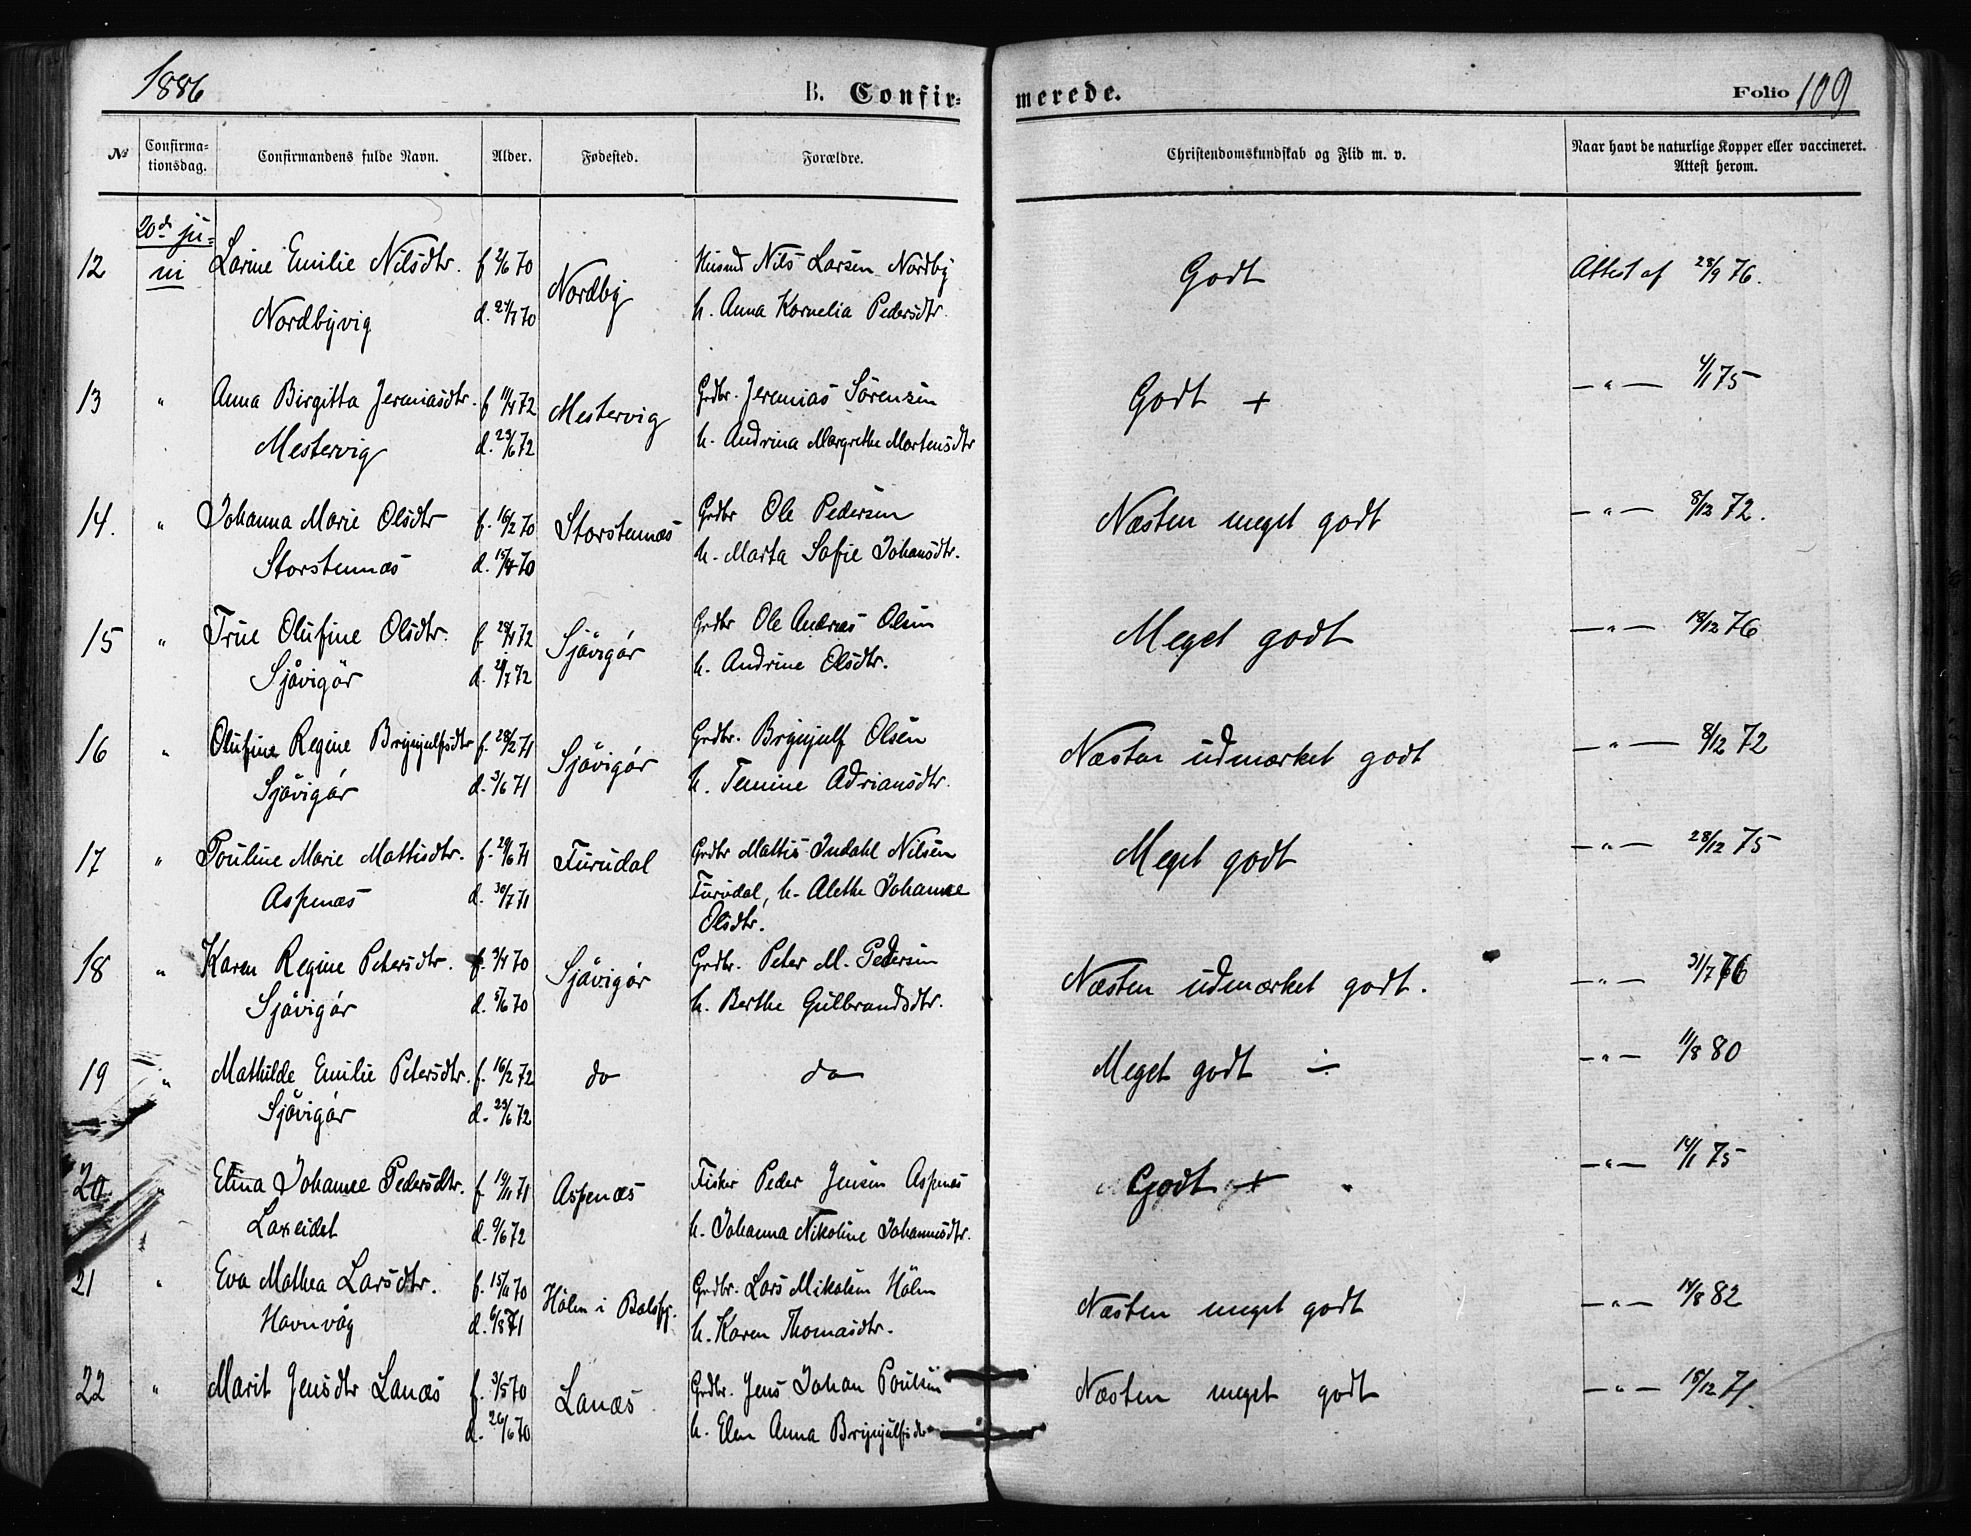 1886 B. Confirmerede. Folio 109
№ Confirmationsdag. Confirmandens fulde Navn. Alder. Fødested. Forældre. Christendomskundskab og Flid m. v. Naar havt de naturlige Kopper eller vaccineret. Attest herom.
20de juni
12 Larine Emilie Nilsdtr. f 2/6 70 Nordby Husmd Nils Larsen Nordby Godt Attest af 28/9 76.
Nordbyvig d. 24/7 70 h. Anna Kornelia Pedersdtr.
13 " Anna Birgitta Jeremiasdtr. f 11/4 72 Mestervig Grdbr. Jeremias Sörensen Godt + —"— 4/1 75
Mestervig d. 23/6 72 h. Andrina Margrethe Mortensdtr
14. " Johanna Marie Olsdtr f. 16/2 70 Storstennæs Grdbr Ole Pedersen Næsten meget godt —"— 8/12 72.
Storstennæs d. 15/4 70 h. Marta Sofie Johansdtr.
15 " Trine Olufine Olsdtr. f 28/4 72 Sjåvigør Grdbr Ole Andreas Olsen Meget godt —"— 19/12 76
Sjåvigør d. 21/7 72 h. Andrine Olsdtr.
16 " Olufine Regine Brynjulfsdtr f. 28/2 71 Sjåvigør Grdbr. Brynjulf Olsen Næsten udmærket godt —"— 8/12 72
Sjåvigør d. 3/6 71 h. Temine Adriansdtr.
17 " Pouline Marie Mattisdtr. f. 29/6 71 Furudal Grdbr Mattis Indahl Nilsen Meget godt —"— 28/12 75
Aspenæs d. 30/7 71 Furudal, h. Alethe Johanne
Olsdtr.
18 " Karen Regine Petersdtr. f. 3/4 70 Sjåvigør Grdbr. Peter M. Pedersen Næsten udmærket godt. —"— 31/7 76
Sjåvigør d. 5/6 70 h. Berthe Gulbrandsdtr.
19 " Mathilde Emilie Petersdtr. f. 16/2 72 do do Meget godt ÷ —"— 11/8 80
Sjåvigør d. 23/6 72
20 Elina Johanne Pedersdtr. f 19/11 71 Aspenæs Fisker Peder Jensen Aspenæs Godt + —"— 14/1 75
Laxeidet d. 9/6 72 h. Johanna Nikoline Johannesdtr.
21 " Eva Mathea Larsdtr. f. 15/11 70 Hölm i Balsfj. Grdbr. Lars Mikalsen Hölm Næsten meget godt —"— 14/8 82
Havnvåg d. 6/8 71 h. Karen Thomasdtr.
22 " Marit Jensdtr Lanæs f. 3/5 70 Lanæs Grdbr. Jens Johan Poulsen Næsten meget godt —"— 15/12 71.
d. 26/6 70 h. Elen Anna Brynjulfsdtr